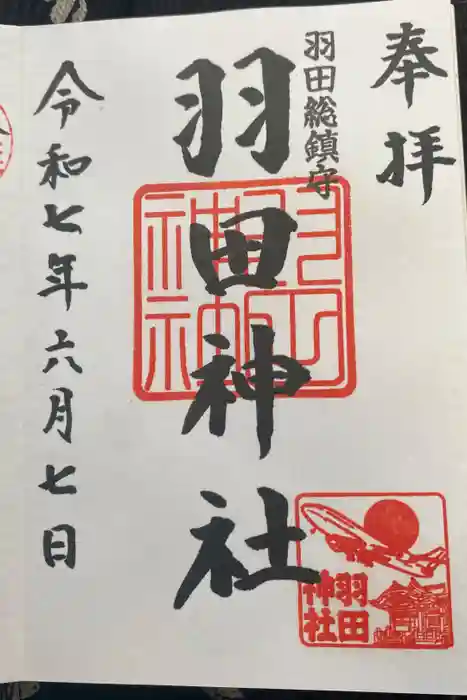 奉拝
羽田総鎮守
羽田神社
令和七年六月七日
羽田神社
羽田
神社